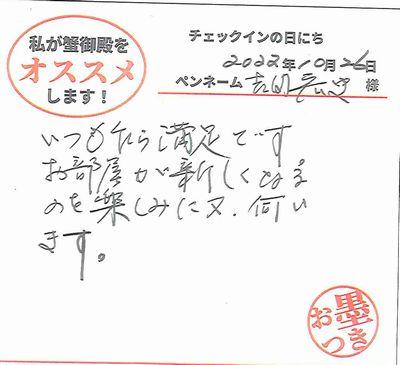 私が蟹御殿を
オススメ
します！
チェックインの日にち
2022年10月26日
ペンネーム 様
いつもながら満足です
お部屋が新しくなる
のを楽しみに又、伺い
ます。
お墨
つき